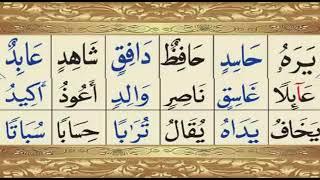 يَرَهُ حَاسِدٍ حَافِظٌ دَافِقٍ شَاهِدٍ عَابِدٌ
عَآىِٕلًا غَاسِقٍ نَاصِرٍ وَالِدٍ أَعُوذُ أَكِيدُ
يَخَافُ يَدَاهُ يُقَالُ تُرَٰبًا حِسَابًا سُبَاتًا